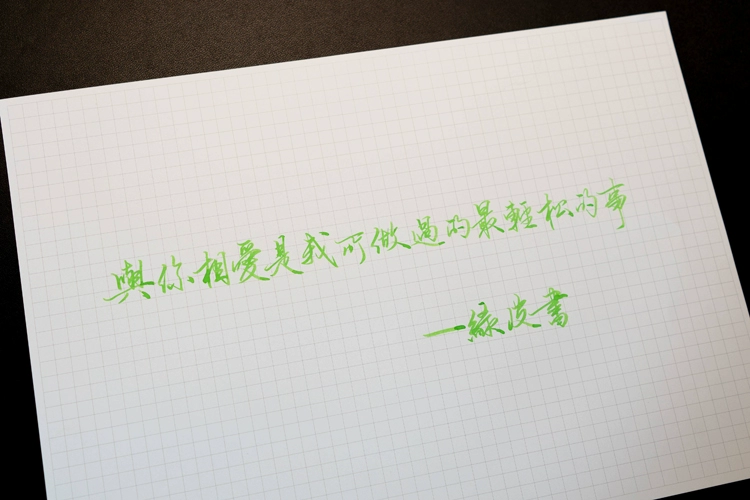 與你相愛是我所做過的最輕松的事
—綠皮書